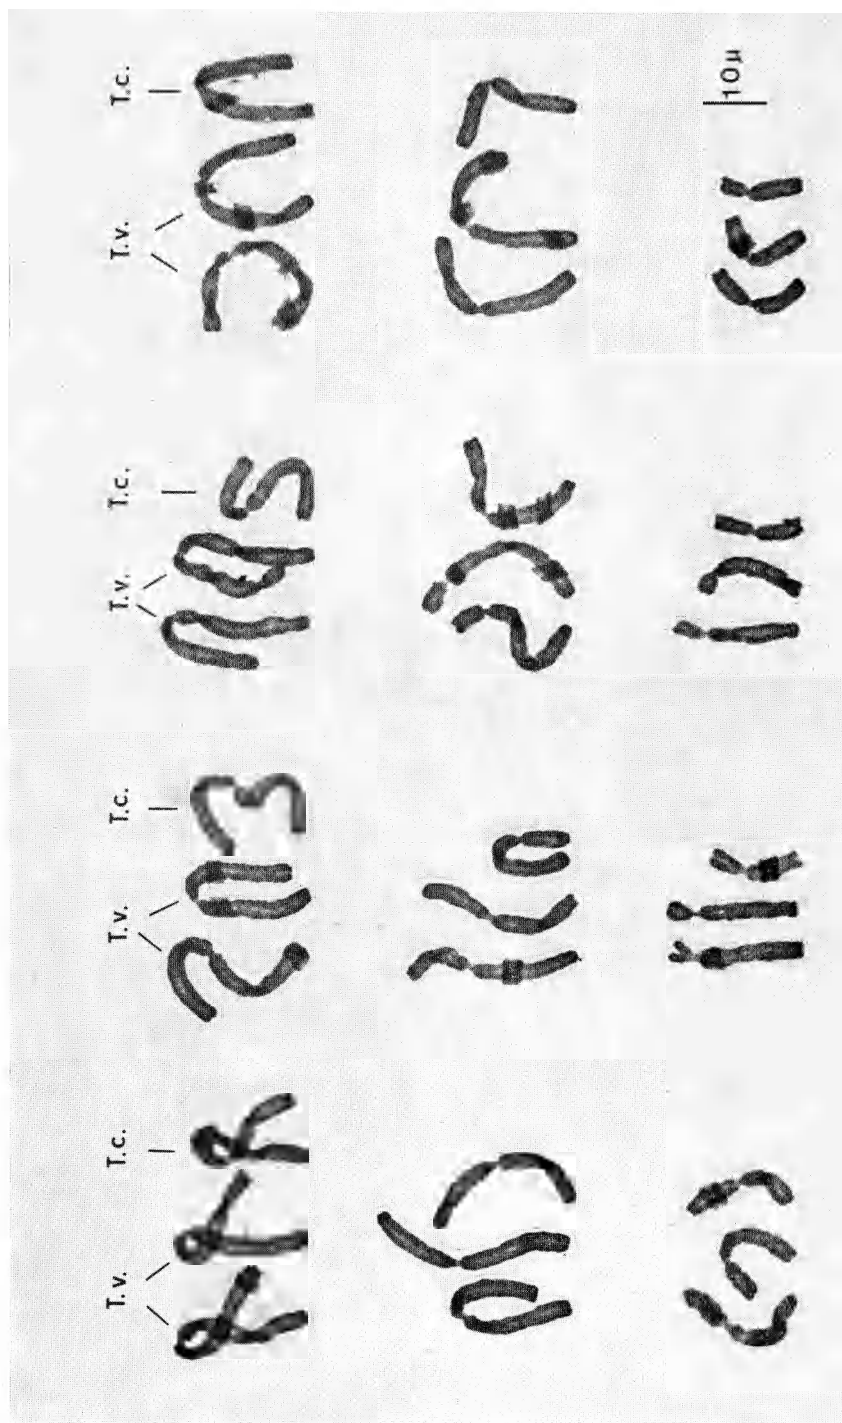 T.v. T.c. T.v. T.c. T.v. T.c. T.v. T.c.
10μ